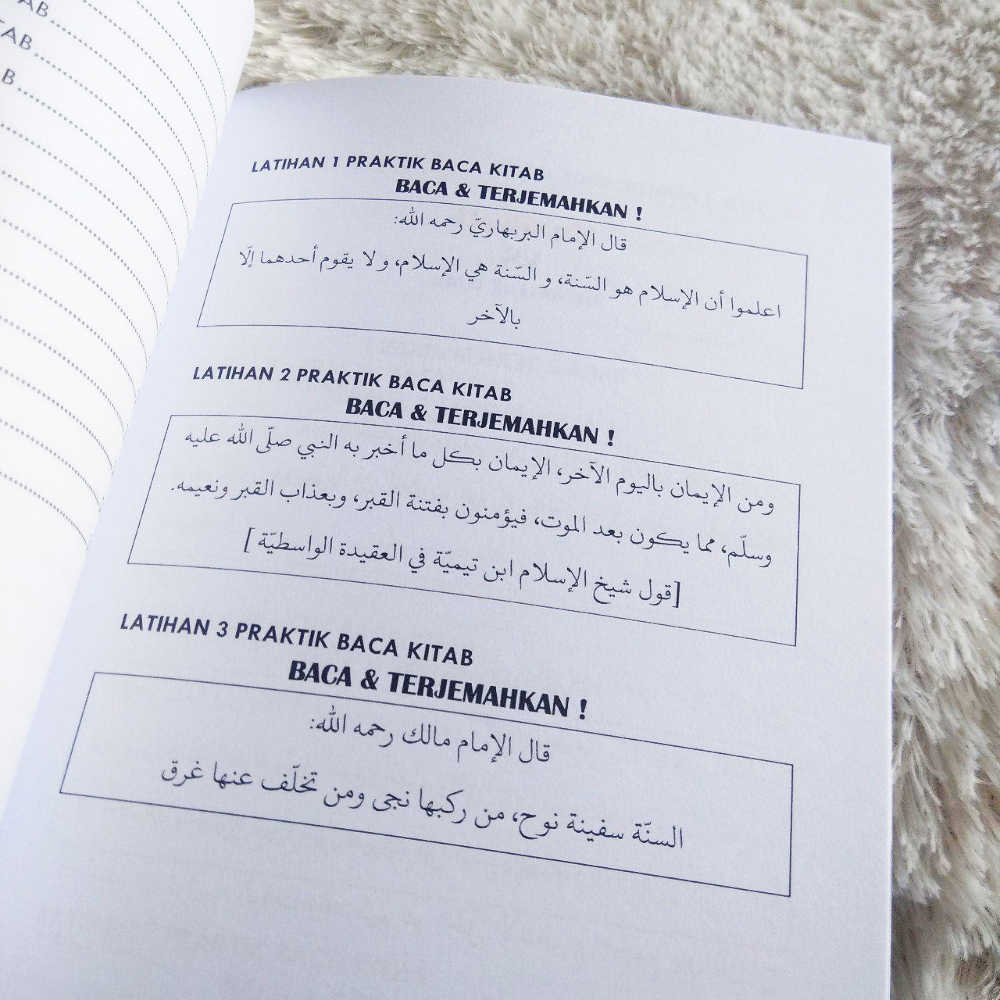 AB
TAB
B
LATIHAN 1 PRAKTIK BACA KITAB
BACA & TERJEMAHKAN !
قال الإمام البربهاريّ رحمه الله:
اعلموا أن الإسلام هو السّنة، و السّنة هي الإسلام، و لا يقوم أحدهما إلّا
بالآخر
LATIHAN 2 PRAKTIK BACA KITAB
BACA & TERJEMAHKAN !
ومن الإيمان باليوم الآخر، الإيمان بكل ما أخبر به النبي صلّى الله عليه
وسلّم، مما يكون بعد الموت، فيؤمنون بفتنة القبر، وبعذاب القبر ونعيمه.
[قول شيخ الإسلام ابن تيميّة في العقيدة الواسطيّة ]
LATIHAN 3 PRAKTIK BACA KITAB
BACA & TERJEMAHKAN !
قال الإمام مالك رحمه الله:
السنّة سفينة نوح، من ركبها نجى ومن تخلّف عنها غرق